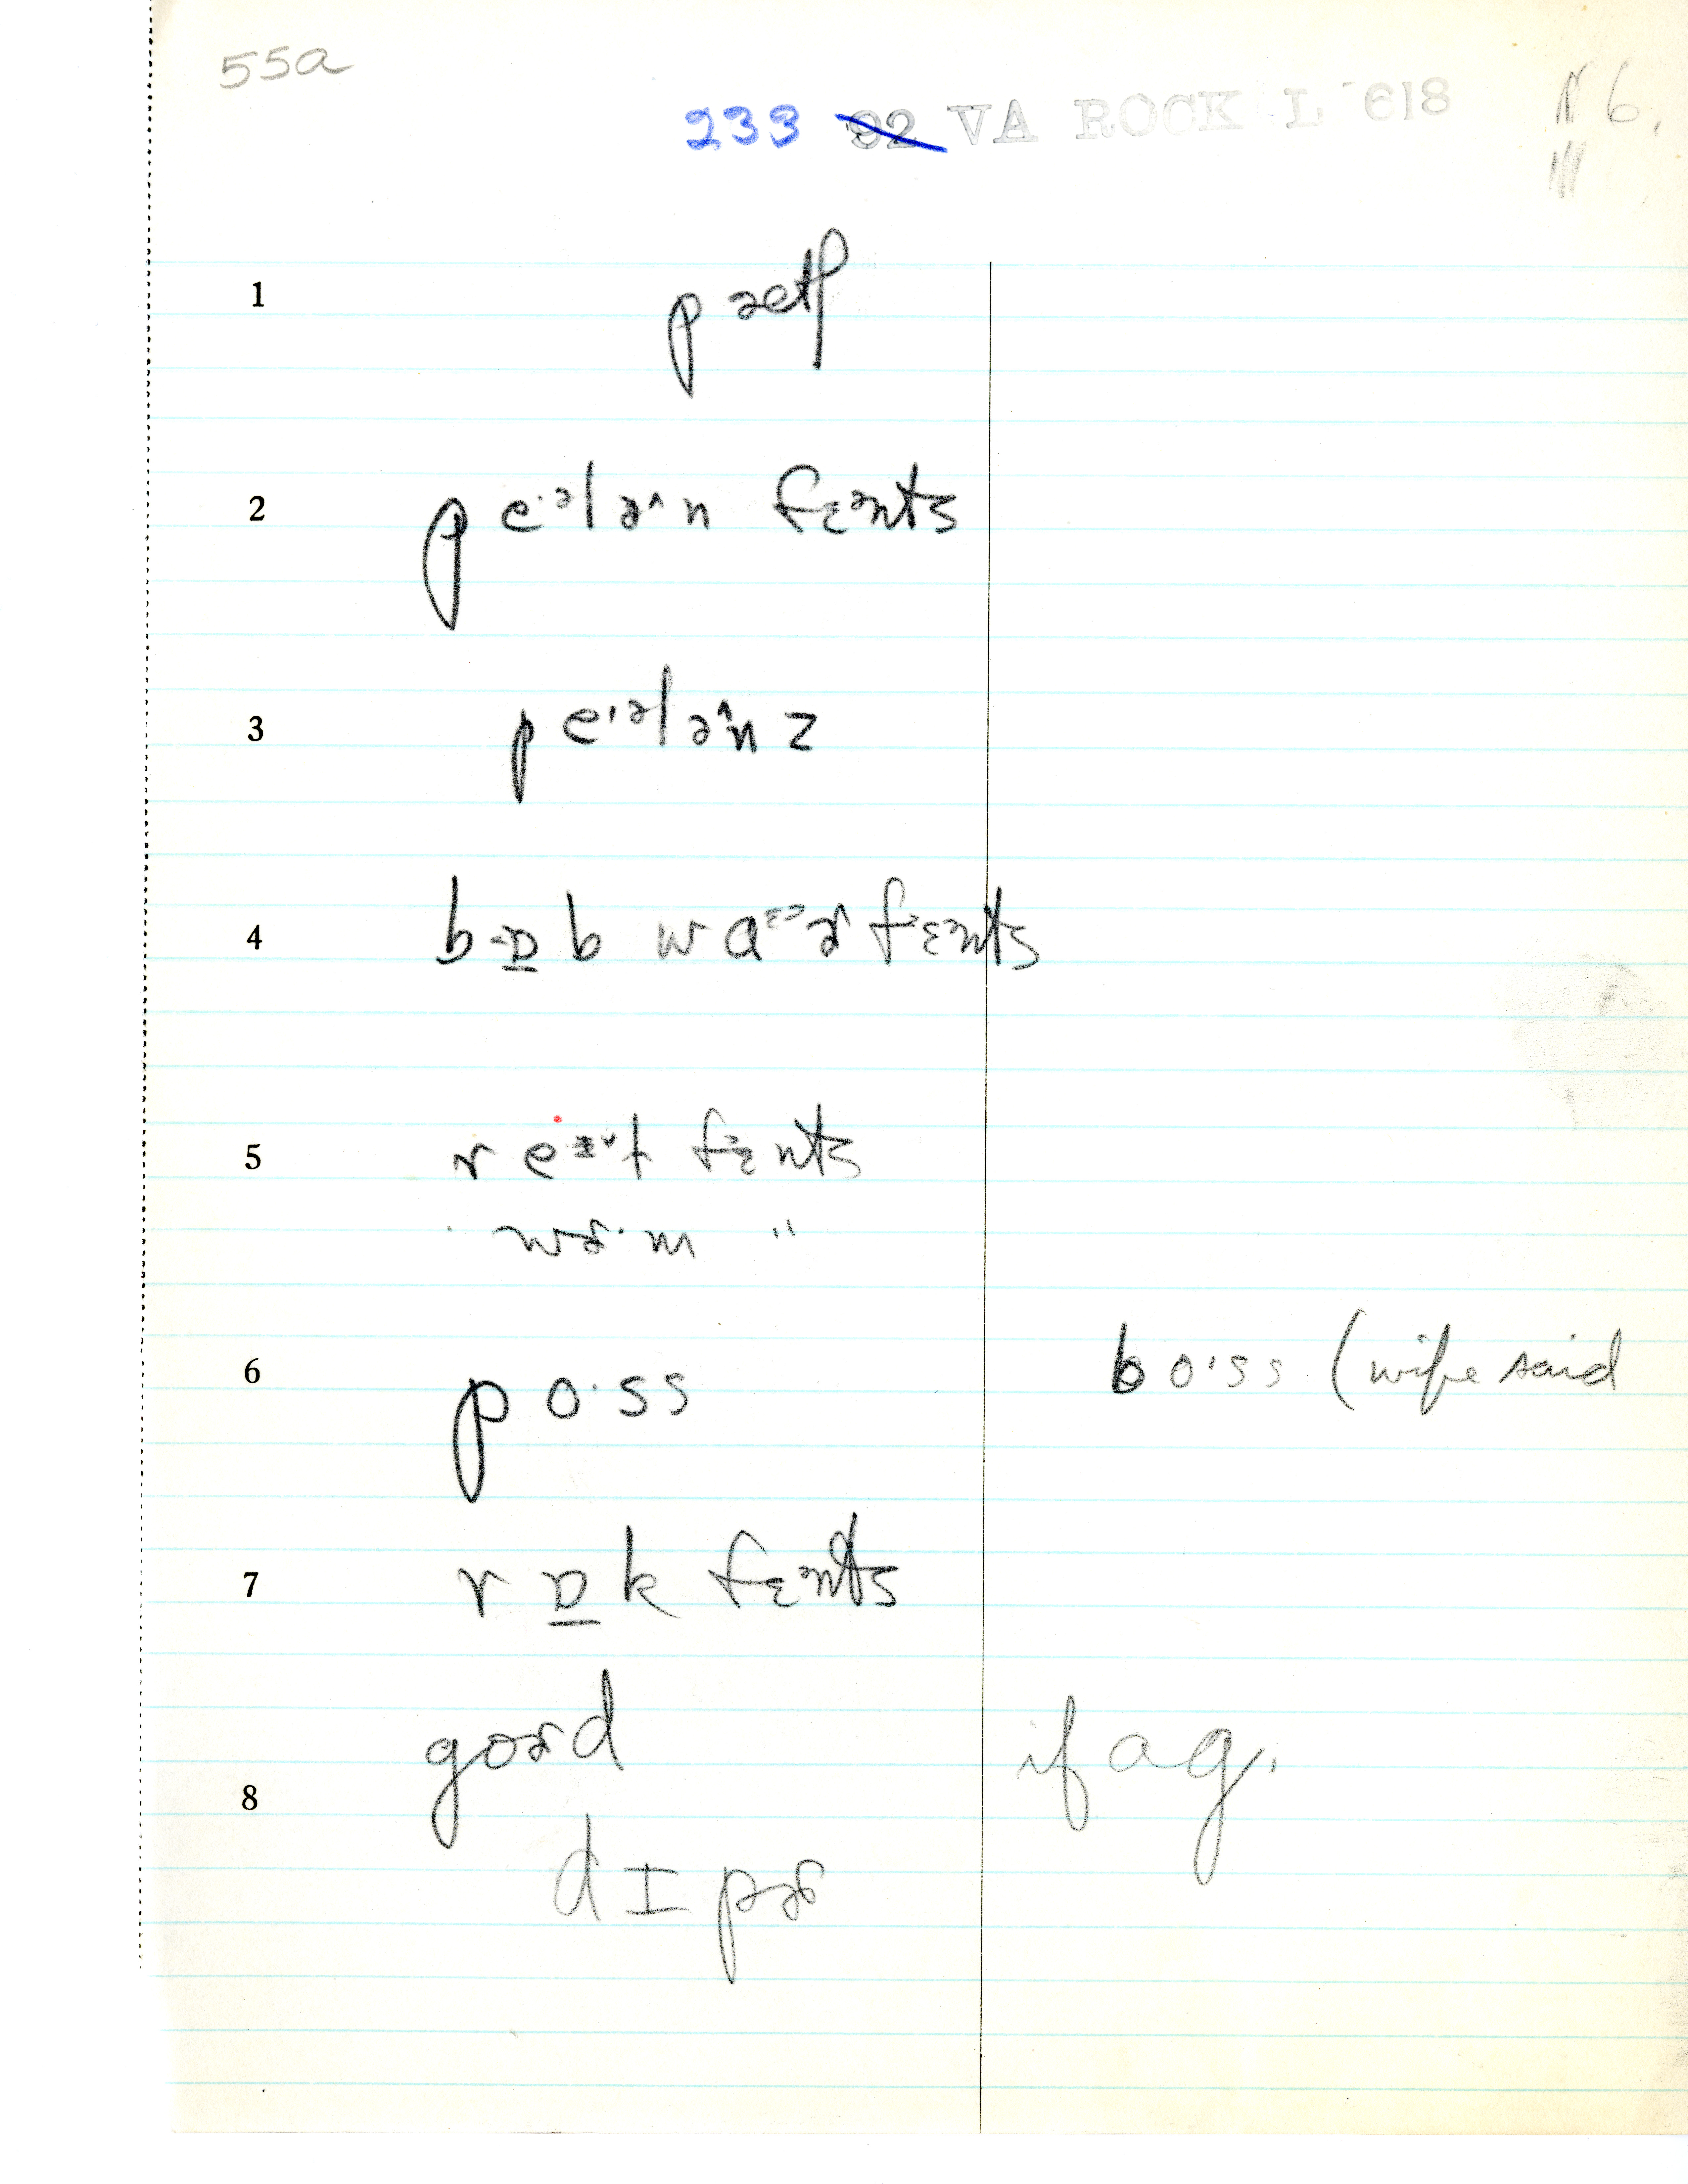 55a
233 92 VA ROCK L 618
1 pæθ
2 p e·ᵊl ə^ n fɛᵊnts
3 p e·ᵊl ə^n z
4 b ɒ̱ b w a ɚ fɛᵊnts
5 r e t fɛᵊnts
wɚ·m "
6 p o·s s b o·s s (wife said
7 r ɒ̱ k fɛᵊnts
goɚd if a g.
8
d ɪ pɚ